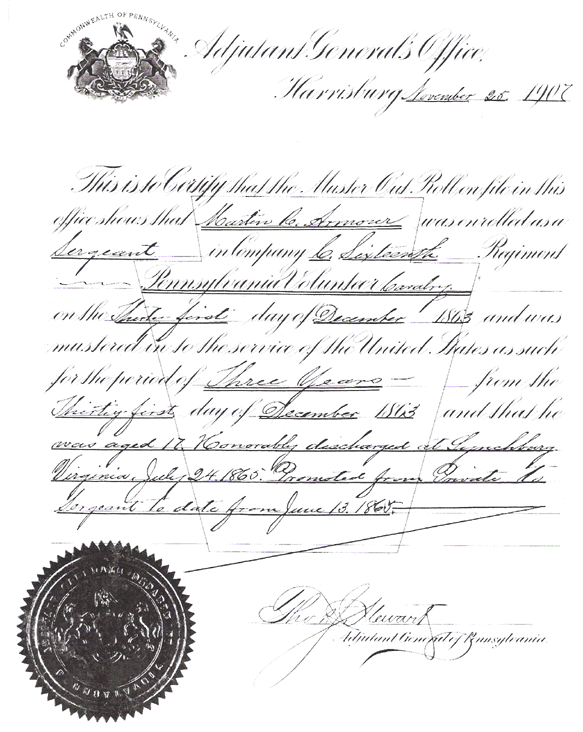 COMMONWEALTH OF PENNSYLVANIA
Adjutant General's Office,
Harrisburg November 25 1907
This is to Certify that the Muster Out Roll on file in this
office shows that Martin C. Armour was enrolled as a
Sergeant in Company C. Sixteenth Regiment
Pennsylvania Volunteer Cavalry
on the Thirty first day of December 1863 and was
mustered in to the service of the United States as such
for the period of Three Years — from the
Thirty first day of December 1863 and that he
was aged 17. Honorably discharged at Lynchburg
Virginia, July 24. 1865. Promoted from Private to
Sergeant to date from June 13. 1865.
Tho J Stewart
Adjutant General of Pennsylvania